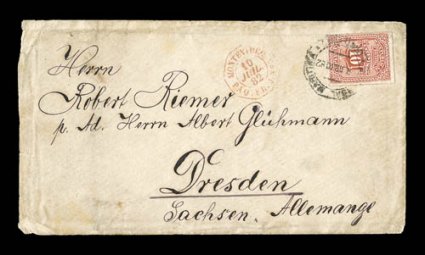 Herrn
Robert Riemer
p. Ad. Herrn Albert Glühmann
Dresden
Sachsen. Allemange
MONTEVIDEO
10
JUL
82
10